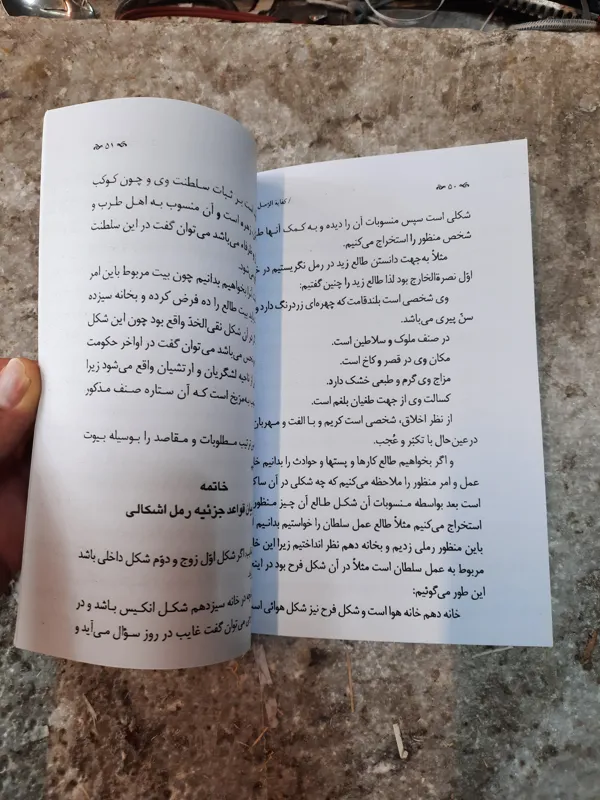 ۵۰
شکلی است سپس منسوبات آن را دیده و به کمک آنها
شخص منظور را استخراج می‌کنیم.
مثلاً به‌جهت دانستن طالع زید در رمل نگریستیم در
اوّل نصرة‌الخارج بود لذا طالع زید را چنین گفتیم:
وی شخصی است بلندقامت که چهره‌ای زردرنگ دارد و
سنّ پیری می‌باشد.
در صنف ملوک و سلاطین است.
مکان وی در قصر و کاخ است.
مزاج وی گرم و طبعی خشک دارد.
کسالت وی از جهت طغیان بلغم است.
از نظر اخلاق، شخصی است کریم و با الفت و مهربان
درعین‌حال با تکبّر و عُجب.
و اگر بخواهیم طالع کارها و پستها و حوادث را بدانیم
عمل و امر منظور را ملاحظه می‌کنیم که چه شکلی در آن
است بعد بواسطه منسوبات آن شکل طالع آن چیز منظور
استخراج می‌کنیم مثلاً طالع عمل سلطان را خواستیم بدانیم
باین منظور رملی زدیم و بخانه دهم نظر انداختیم زیرا این
مربوط به عمل سلطان است مثلاً در آن شکل فرح بود در
این طور می‌گوئیم:
خانه دهم خانه هوا است و شکل فرح نیز شکل هوائی
۵۱
بر ثبات سلطنت وی و چون کوکب
زهره است و آن منسوب به اهل طرب و
می‌باشد می‌توان گفت در این سلطنت
بخواهیم بدانیم چون بیت مربوط باین امر
بیت طالع را ده فرض کرده و بخانه سیزده
در آن شکل نقی‌الخدّ واقع بود چون این شکل
می‌باشد می‌توان گفت در اواخر حکومت
ناحیه لشگریان و ارتشیان واقع می‌شود زیرا
به‌مرّیخ است که آن ستاره صنف مذکور
ترتیب مطلوبات و مقاصد را بوسیله بیوت
خاتمه
قواعد جزئیه رمل اشکالی
اگر شکل اوّل زوج و دوّم شکل داخلی باشد
در خانه سیزدهم شکل انکیس باشد و در
می‌توان گفت غایب در روز سؤال می‌آید و